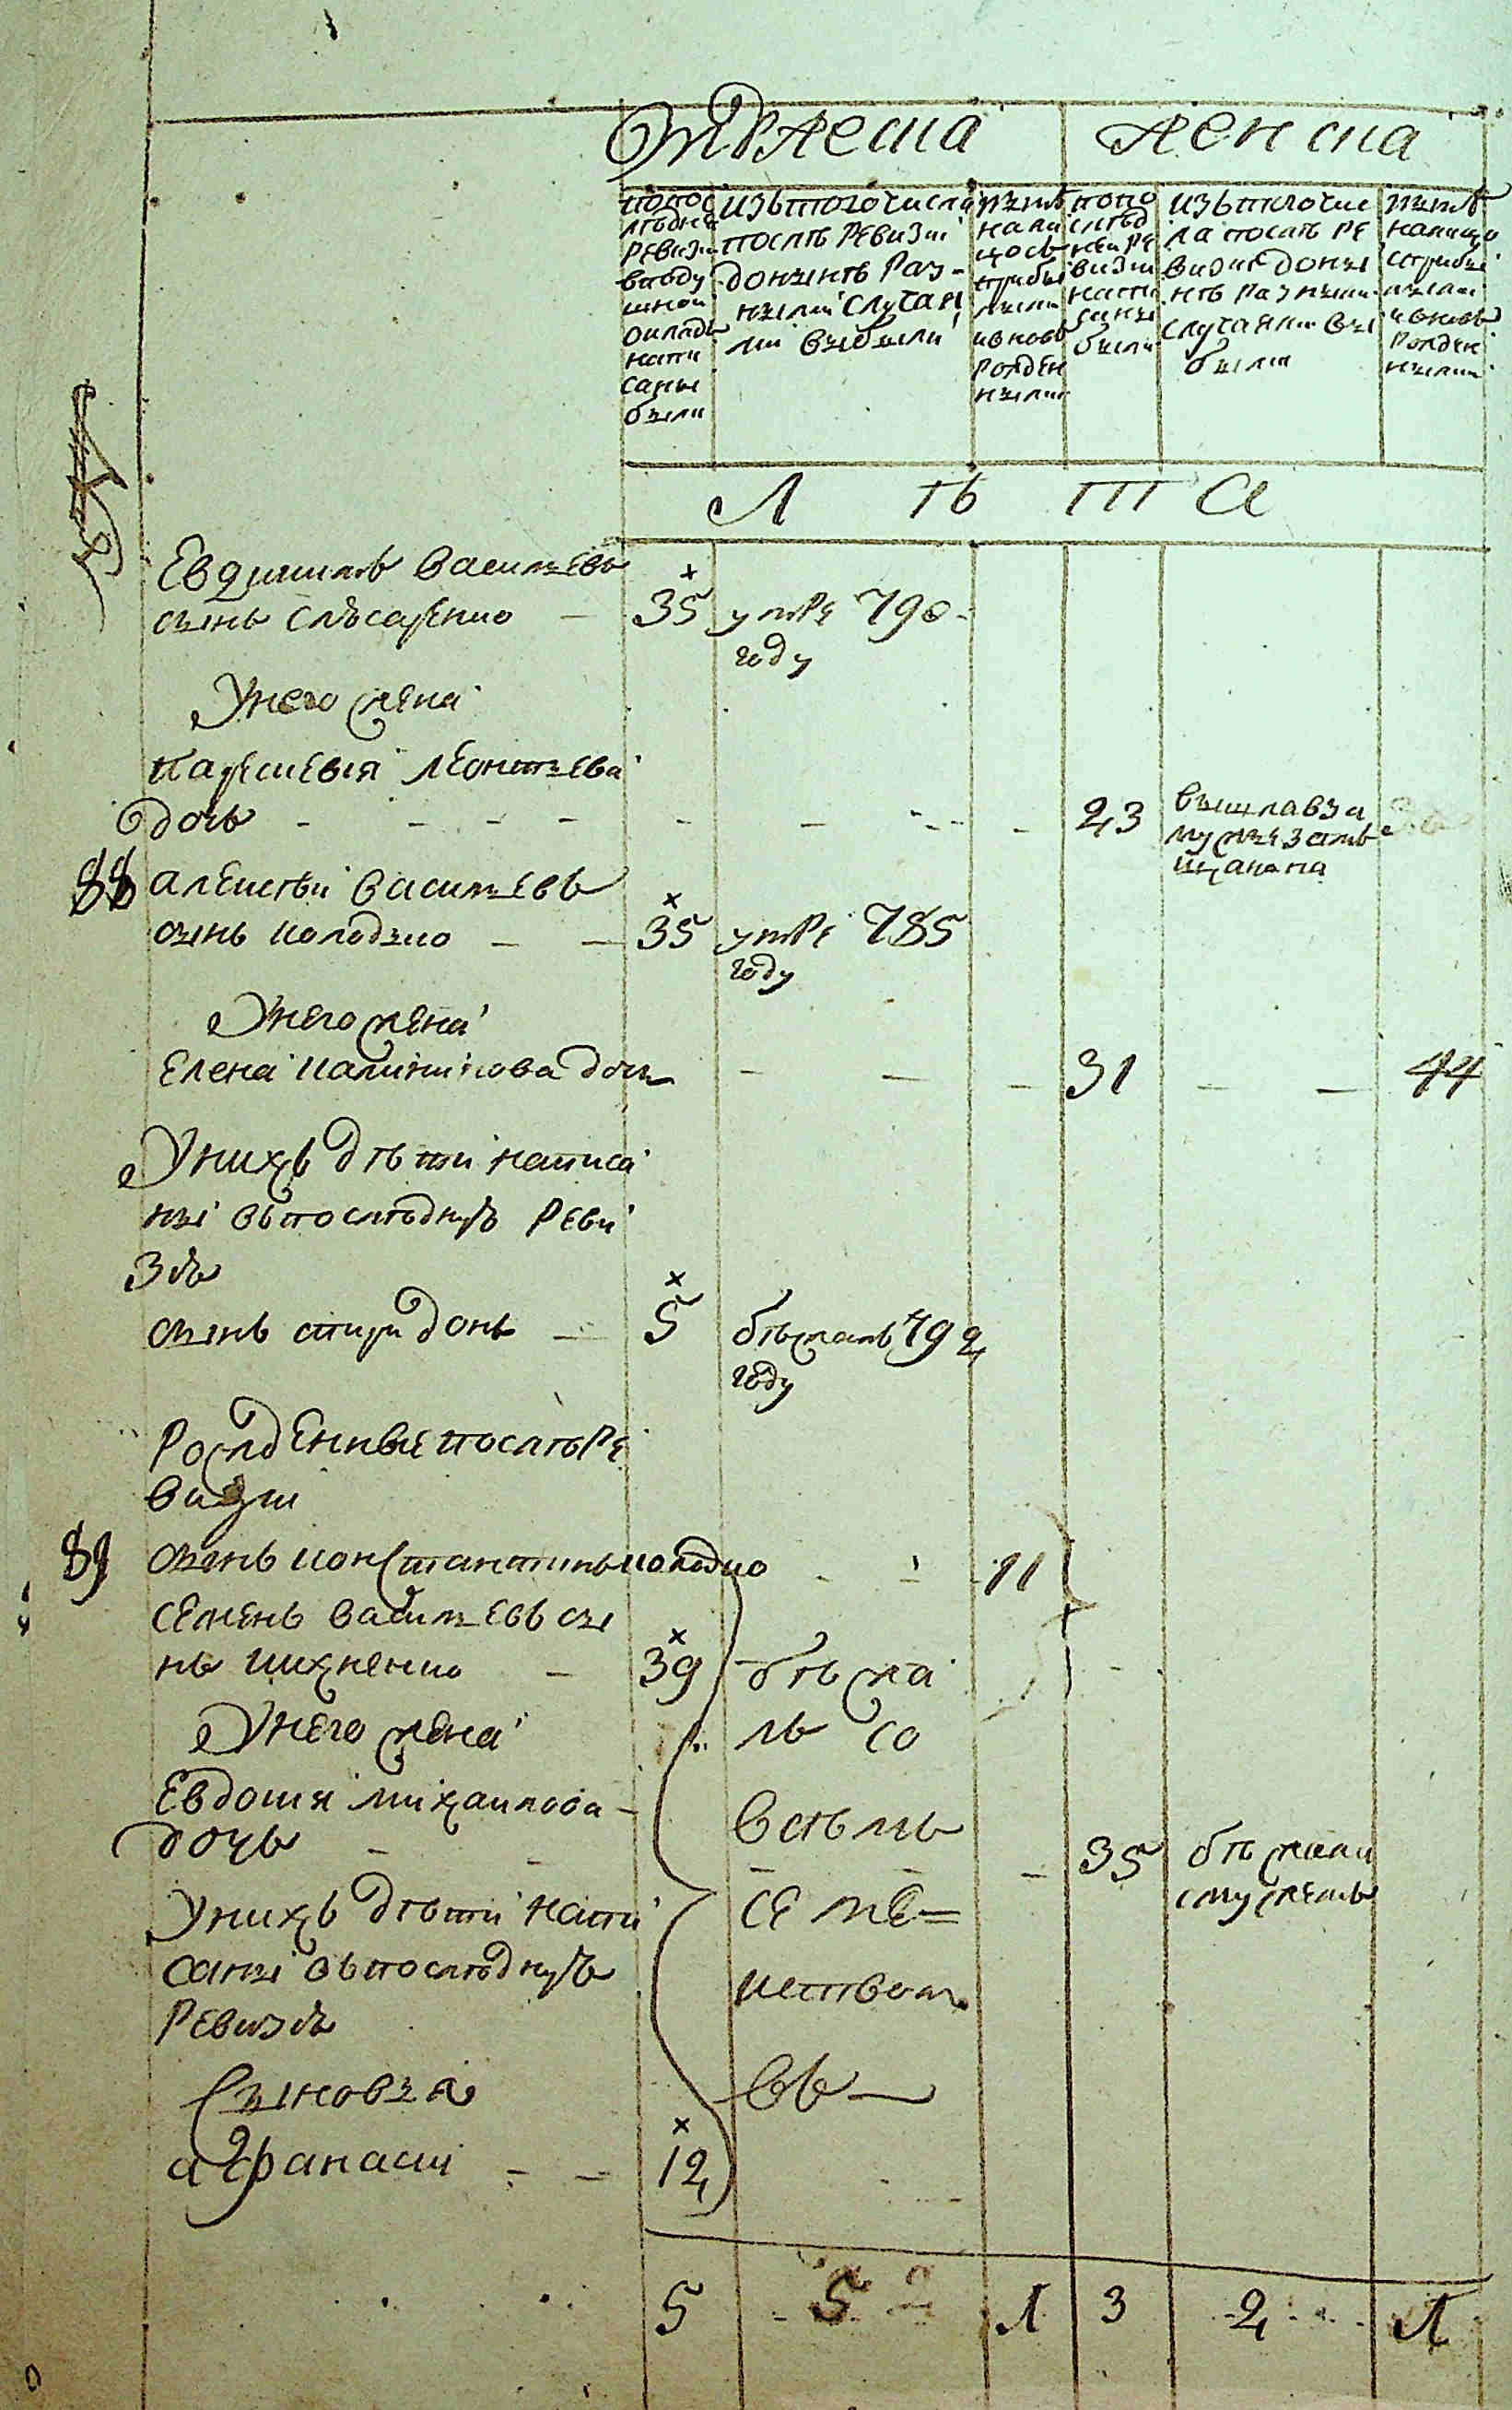 Мужеска женска
попос
лѣдней
Ревизіи
вподу
шной
окладъ
напи
саны
были
изътогочисла
послѣ Ревизіи
донынѣ Раз-
ными случая
ми выбыли
нынѣ
нали
цось
прибы
лыми
ивновь
Рожден
ными
попо
слѣд
ней Ре
визіи
напи
саны
были
изътогочис
ла послѣ Ре
визіи доны
нѣ Разными
случаями вы
были
нынѣ
налицо
сприбы
лыми
ивновь
Рожден
ными
Л ѣ т а
Евдокимъ Васильевъ
сынъ слѣсаренко — 35 умре 790-
году
Унего жена
Параскевія леонтьева
дочь - - - - 23 вышлавза
мужъезамъ
щанина
88 алексѣй Васильевъ
сынъ колодько — — 35 умре 785
году
Унего жена
Елена калиникова дочь — — — 31 — — 44
Унихъ дѣти написа
ны въпослѣднуѣ Реви
зѣ
сынъ спиридонъ — 5 бѣжалъ 792
году
Рожденныепослѣ Ре
визіи
89 сынъ константинъ колодко - - 11
семенъ васильевъ сы
нъ михненко — 39 бѣжа
лъ со
Унего жена
Евдокия михаилова
дочь - - всѣмъ
— 35 бѣжала
смужемъ
Унихъ дѣти напи
саны въпослѣднуѣ
Ревизѣ
семе=
иством
Сыновья
въ—
афанасіи - - 12
5 5 1 3 2 1